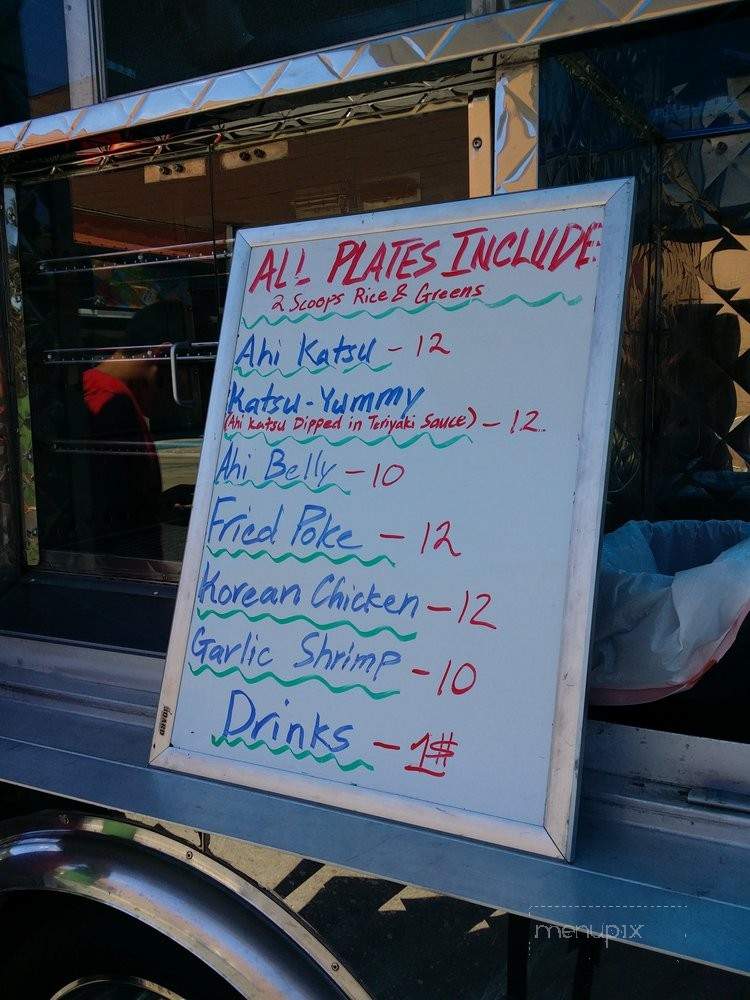 ALL PLATES INCLUDE
2 Scoops Rice & Greens
Ahi Katsu - 12
Katsu-Yummy
(Ahi Katsu Dipped in Teriyaki Sauce) - 12
Ahi Belly - 10
Fried Poke - 12
Korean Chicken - 12
Garlic Shrimp - 10
Drinks - 1$
BOARD
menupix